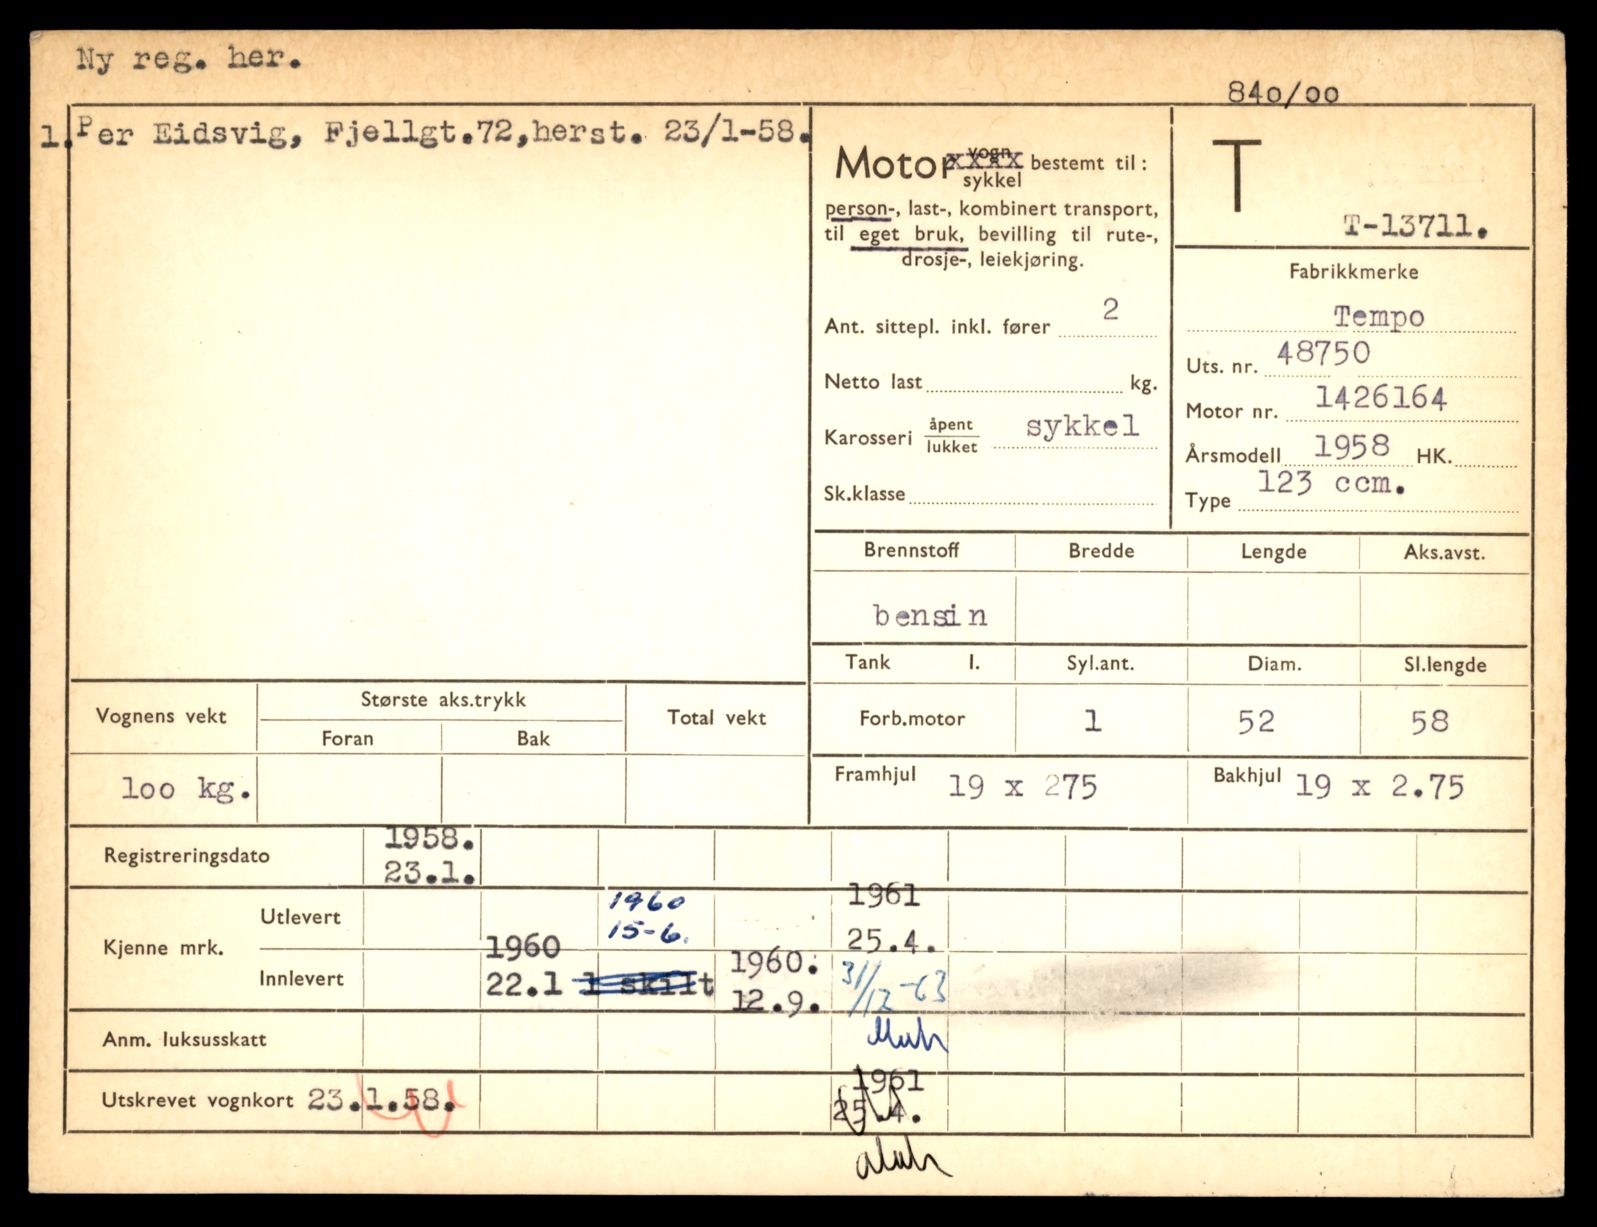 Ny reg. her.
840/00
1. Per Eidsvig, Fjellgt.72,herst. 23/1-58.
Motor vogn xxxx sykkel bestemt til:
person-, last-, kombinert transport,
til eget bruk, bevilling til rute-,
drosje-, leiekjøring.
Ant. sittepl. inkl. fører 2
Netto last kg.
Karosseri åpent lukket sykkel
Sk.klasse
T
T-13711.
Fabrikkmerke
Tempo
Uts. nr. 48750
Motor nr. 1426164
Årsmodell 1958 HK.
Type 123 ccm.
Brennstoff Bredde Lengde Aks.avst.
bensin
Tank l. Syl.ant. Diam. Sl.lengde
Forb.motor 1 52 58
Framhjul 19 x 275 Bakhjul 19 x 2.75
Vognens vekt Største aks.trykk Total vekt
Foran Bak
100 kg.
Registreringsdato 1958.
23.1.
Kjenne mrk.
Utlevert 1960 1961
15-6. 25.4.
Innlevert 1960 1960. 31/12-63
22.1 1 skilt 12.9.
Anm. luksusskatt
Utskrevet vognkort 23.1.58. 1961
25.4.